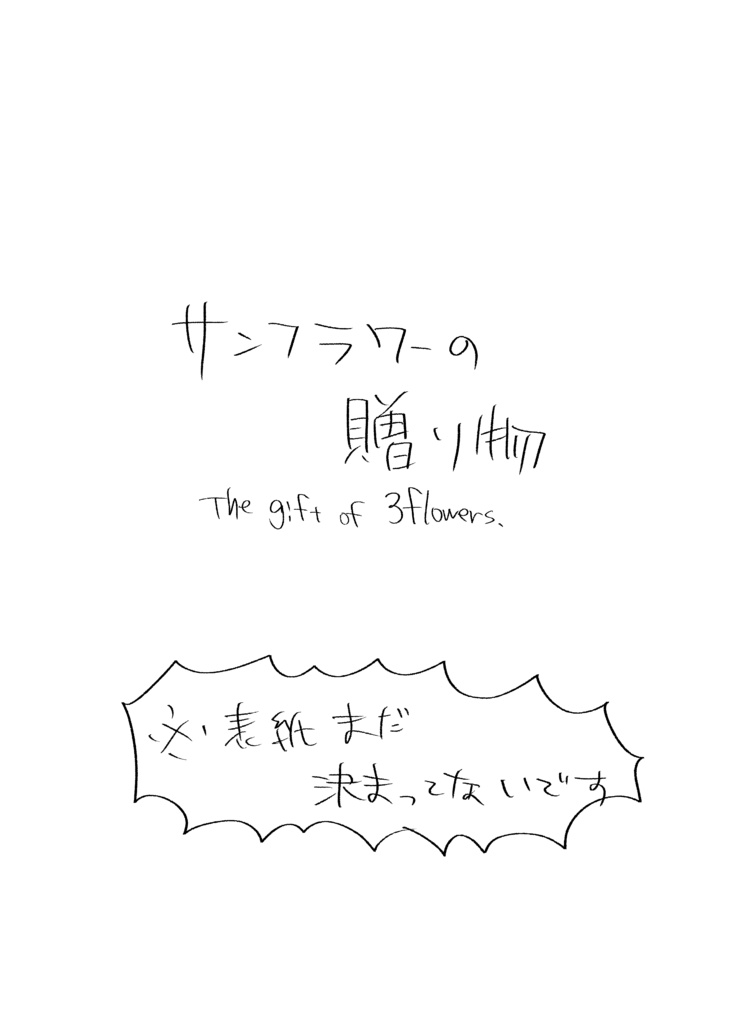 サンフラワーの
贈り物
The gift of 3flowers.
※表紙まだ
決まってないです